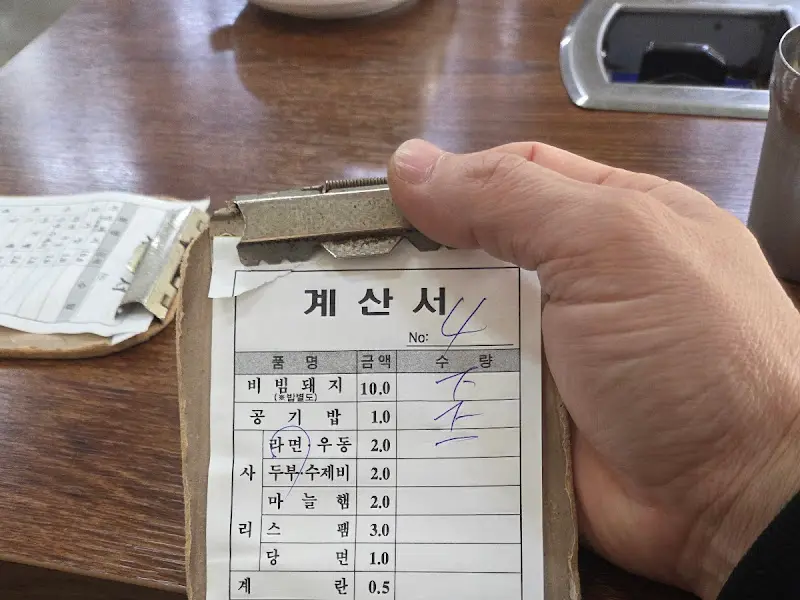 계산서
No: 4
품명 금액 수량
비빔돼지 10.0
(※밥별도)
공기밥 1.0
라면·우동 2.0
사리
두부·수제비 2.0
마늘햄 2.0
스팸 3.0
당면 1.0
계란 0.5